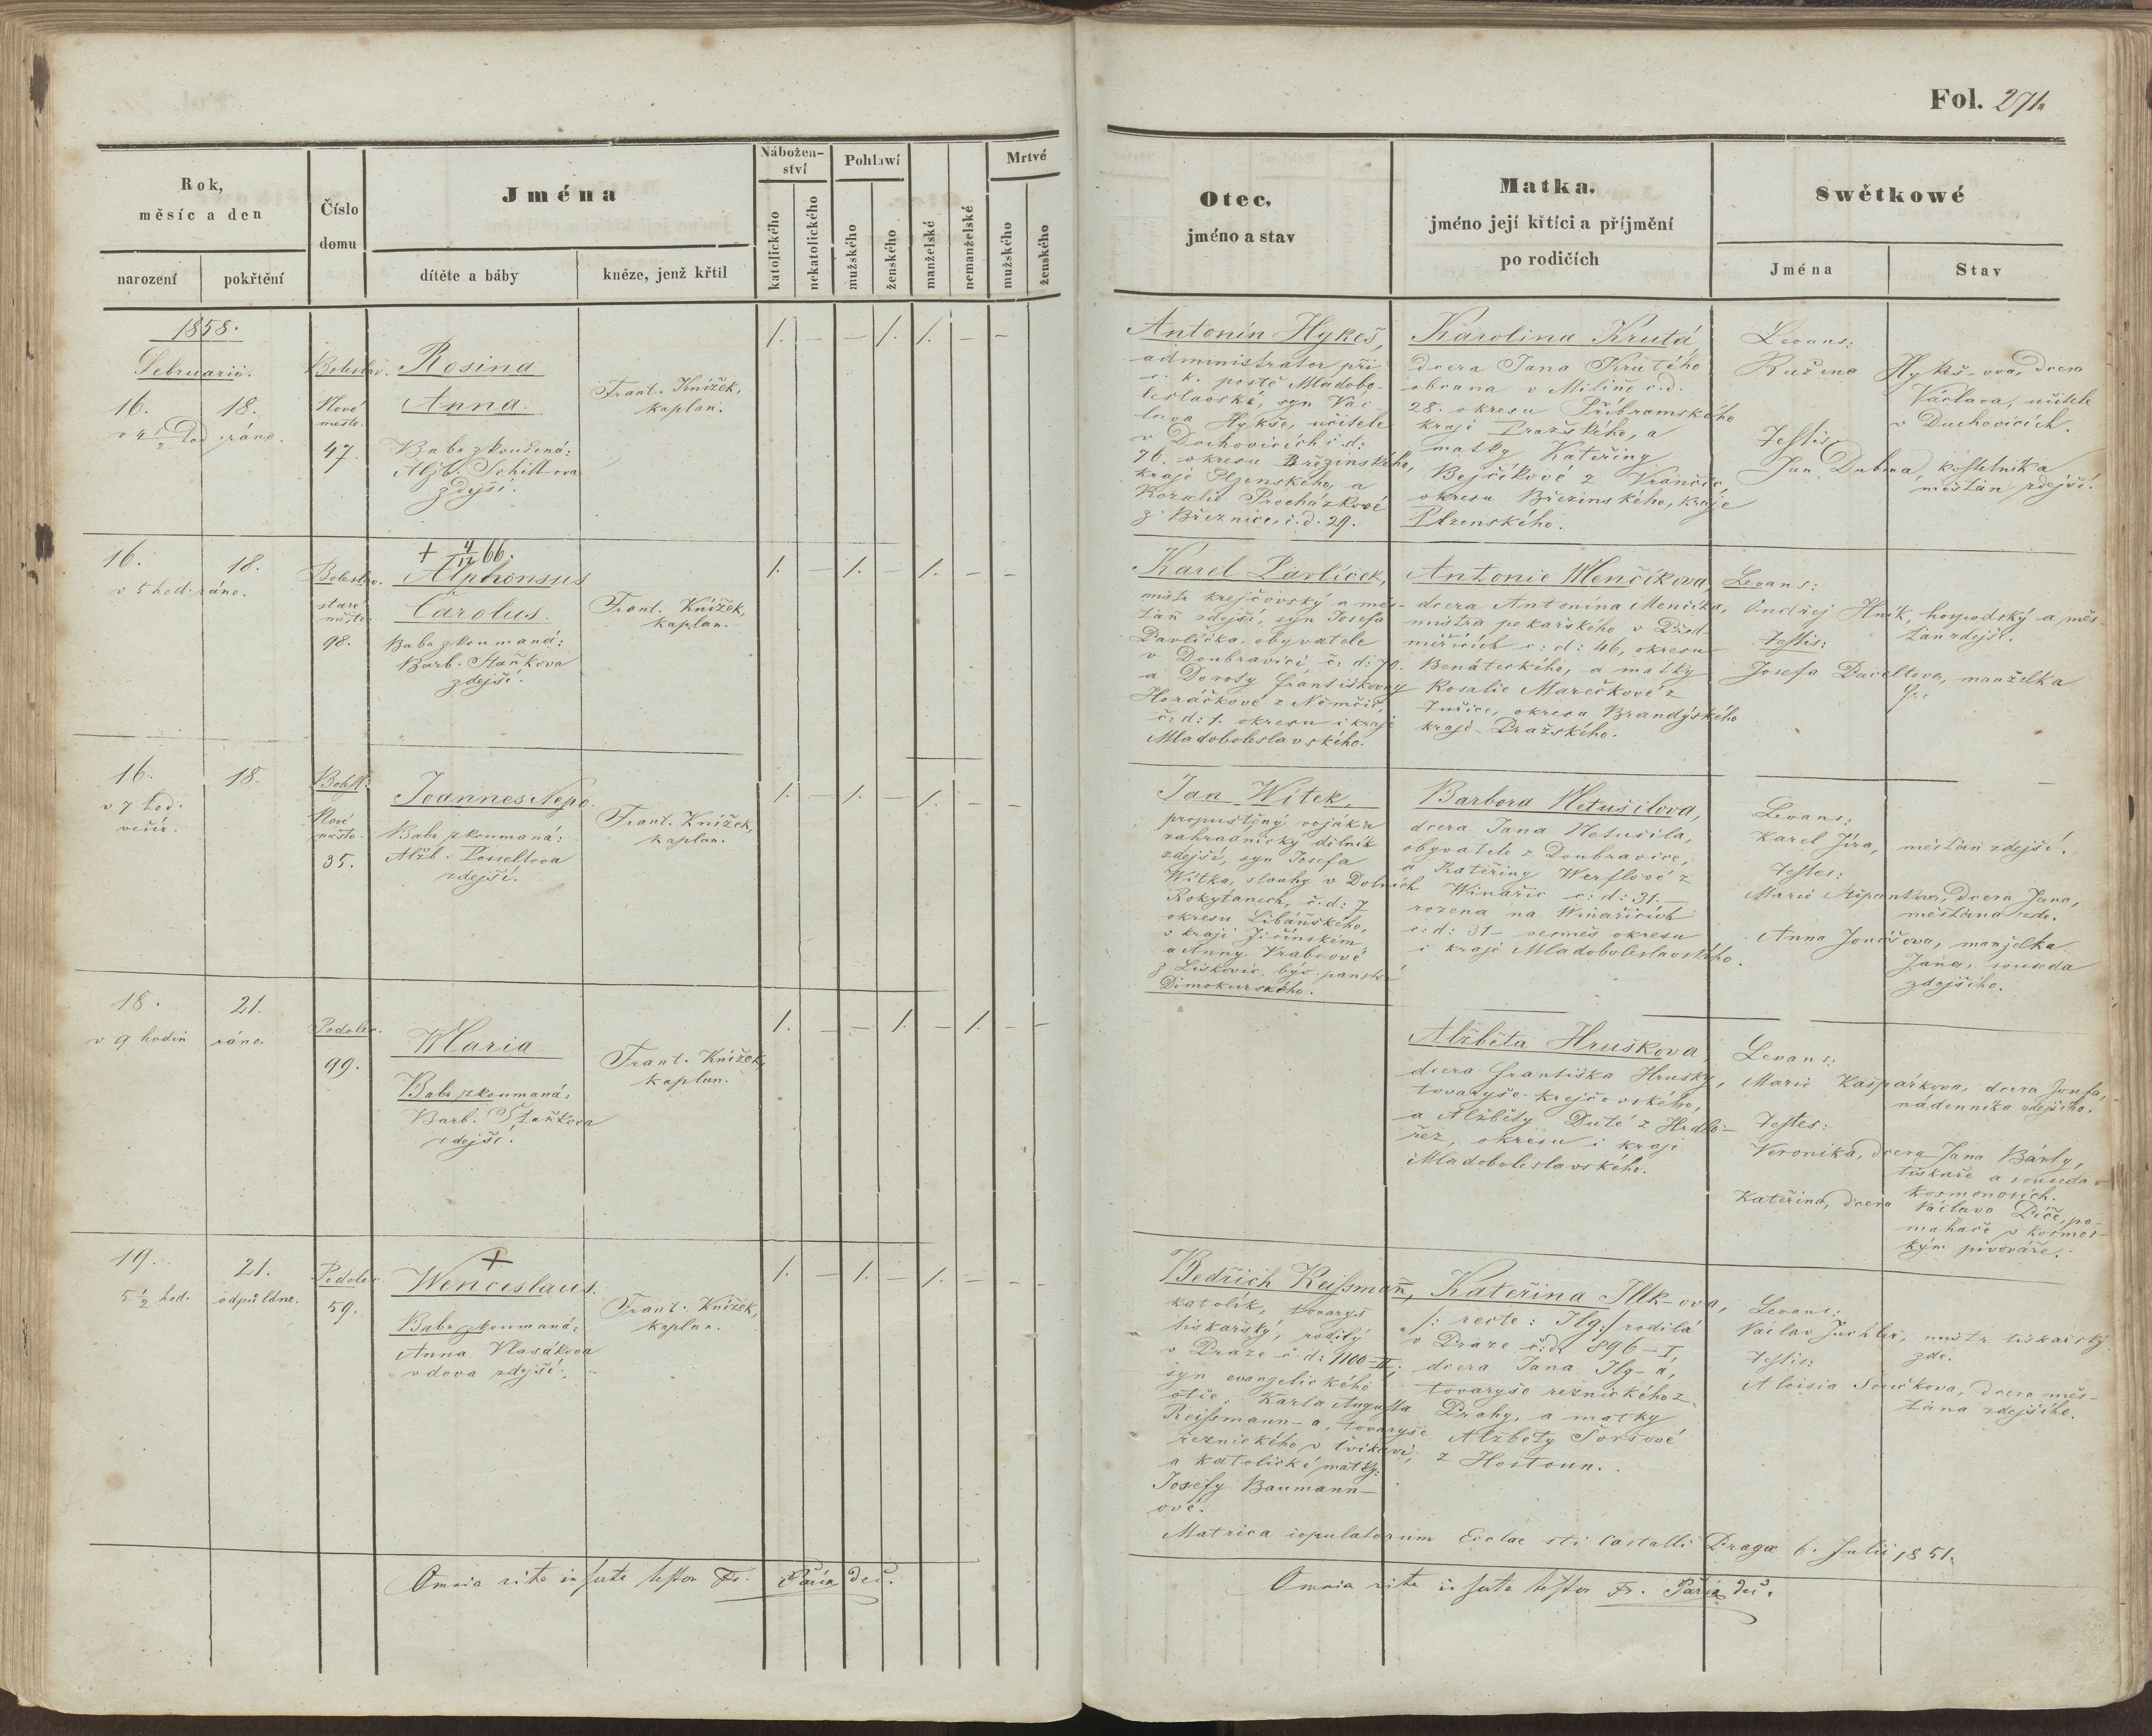 Fol. 271.
Rok,
měsíc a den
narození
pokřtění
Číslo
domu
Jména
dítěte a báby
kněze, jenž křtil
Nábožen-
ství
katolického
nekatolického
Pohlawí
mužského
ženského
manželské
nemanželské
Mrtvé
mužského
ženského
Otec,
jméno a stav
Matka,
jméno její křtící a příjmění
po rodičích
Swětkowé
Jména
Stav
1858.
Februarii.
16. 18.
v 4 1/2 hod. ráno.
Boleslav.
Nové
město.
47.
Rosina
Anna.
Baba zkoušená:
Alžb.
zdejší.
Frant. Knížek,
kaplan.
1. — — 1. 1. — —
Antonín Hykeš,
administrator při
c. k. poště Mladobo-
leslavské, syn Vác-
lava Hykše, učitele
v Duchovicích č. d:
76. okresu Březinského,
kraje Plzenského, a
Rozalie Procházkové
z Březnice, č. d. 29.
Karolina Krutá,
dcera Jana Krutého
občana v Milíně č. d.
28. okresu Příbramského
kraje Pražského, a
matky Kateřiny
Bejčkové z Vrančic,
okresu Březinského, kraje
Plzenského.
Levans:
Ružena Hykeš-ova, dcera
Václava, učitele
v Duchovicích.
Testis:
Jan Dubina, kostelník a
měšťan zdejší.
16. 18.
v 5 hod. ráno.
Boleslav.
staré
město
98.
+ 4/12 66.
Alphonsus
Carolus.
Baba zkoumaná:
Barb. Staňkova
zdejší.
Frant. Knížek,
kaplan.
1. — 1. — 1. — —
Karel Pavlíček,
mistr krejčovský a měš-
ťan zdejší, syn Josefa
Pavlíčka, obyvatele
v Doubravici, č: d: 70.
a Doroty Františkovny
Horáčkové z Němčic,
č: d: 1. okresu i kraje
Mladoboleslavského.
Antonie Menčíkova,
dcera Antonína Menčíka,
mistra pekařského v Před-
měřicích č: d: 46, okresu
Benáteckého, a matky
Rosalie Marečkové z
Tuřice, okresu Brandýského
kraje Pražského.
Levans:
Ondřej Hník, hospodský a měš-
ťan zdejší.
Testis:
Josefa Paceltova, manželka
16. 18.
v 7 hod.
večír.
Bolesl:
Nové
město.
35.
Joannes Nepo.
Baba zkoumaná:
Alžb. Posseltova
zdejší.
Frant. Knížek,
kaplan.
1. — 1. — 1. — —
Jan Witek,
propuštěný voják a
zahradnický dílník
zdejší, syn Josefa
Witka, slouhy v Dolních
Rokytanech, č. d: 7
okresu Libáňského,
v kraji Jičínském
a Anny Vrabcové
z Liskovic, býv. panství
Dimokurského.
Barbora Netušilova,
dcera Jana Netušila,
obyvatele z Doubravice,
a Kateřiny Werflové z
Winařic č: d: 31.—
rozena na Winařicích
č: d: 31— vesměs okresu
i kraje Mladoboleslavského.
Levans:
Karel Jíra, měšťan zdejší.
Testes:
Marie Štěpankova, dcera Jana,
měšťana zde.
Anna Jonášova, manželka
Jana, souseda
zdejšího.
18. 21.
v 9 hodin ráno.
Podolec.
99.
Maria
Baba zkoumaná:
Barb. Staňkova
zdejší.
Frant. Knížek,
kaplan.
1. — — 1. — 1. — —
Alžběta Hruškova,
dcera Františka Hrušky,
tovaryše krejčovského,
a Alžběty Duté z Hrdlo-
řez, okresu i kraje
Mladoboleslavského.
Levans:
Marie Kašpárkova, dcera Josefa,
nádenníka zdejšího.
Testes:
Veronika, dcera Jana Bárty,
tiskaře a souseda v
Kosmonosích.
Kateřina, dcera Václava Píče, po-
mahače v kosmos-
kým pivováře.
19. 21.
5 1/2 hod. odpůldne.
Podolec
59.
+
Wenceslaus.
Baba zkoumaná:
Anna Vlasákova
vdova zdejší.
Frant. Knížek,
kaplan.
1. — 1. — 1. — — —
Bedřich Reissmann,
katolík, tovaryš
tiskařský, rodilý
v Praze č. d: 1100-II,
syn evangelického
otce, Karla Augusta
Reissmann-a, tovaryše
řeznického v Cvikavi,
a katolické matky:
Josefy Baumann-
ové.
Kateřina Illk-ova,
/: recte: Ilg:/ rodilá
v Praze č. d. 896-I,
dcera Jana Ilg-a,
tovaryše řeznického z
Prahy, a matky
Alžběty Šoršové
z Hostoun.
Levans:
Václav Tuchler, mistr tiskařský
zde.
Testis:
Aloisia Součkova, dcera měš-
ťana zdejšího.
Matrica copulatorum Ecclae sti Castalli Pragae 6. Julii 1851.
Omnia rite inserta testor Fr. Pařík děč.
Omnia rite inserta testor Fr. Pařík děč.